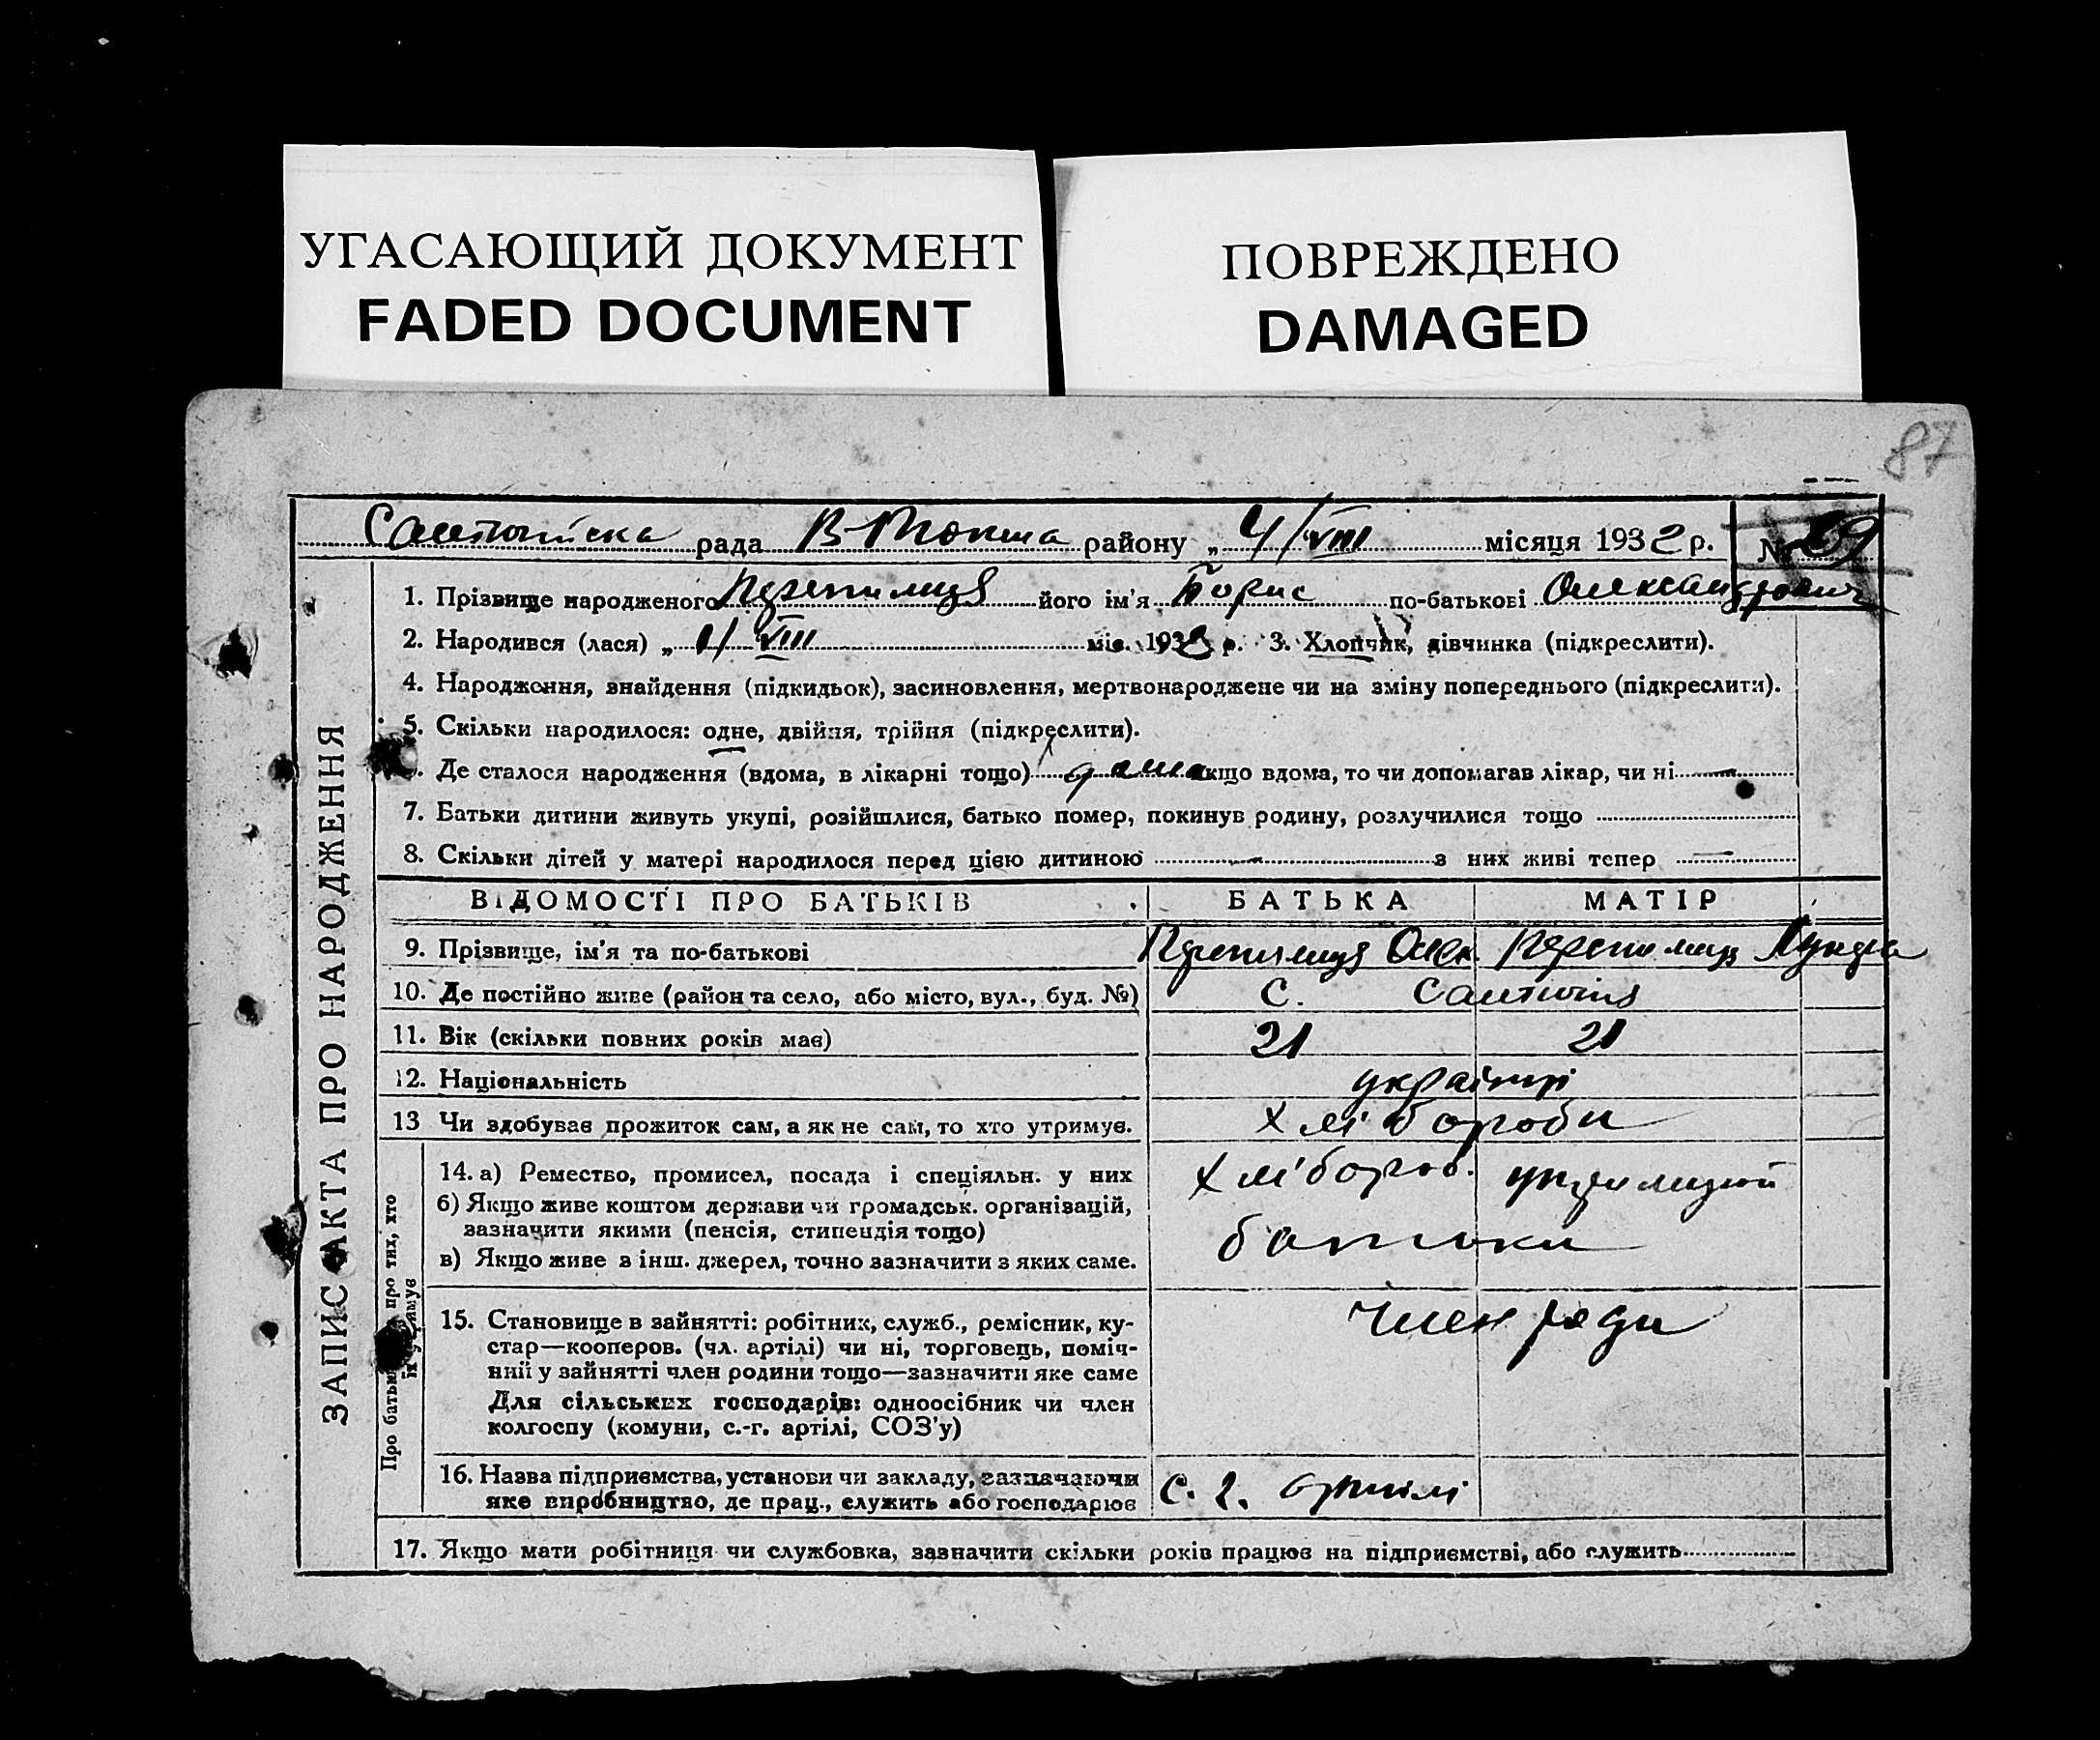 УГАСАЮЩИЙ ДОКУМЕНТ
FADED DOCUMENT
ПОВРЕЖДЕНО
DAMAGED
87
рада В-Токма району „ 4/VIII місяця 1932 р. № 69
ЗАПИС АКТА ПРО НАРОДЖЕННЯ
1. Прізвище народженого Перепилиця його ім'я Борис по-батькові Олександрович
2. Народився (лася) „ 1/VIII міс. 1932 р. 3. Хлопчик, дівчинка (підкреслити).
4. Народження, знайдення (підкидьок), засиновлення, мертвонароджене чи на зміну попереднього (підкреслити).
5. Скільки народилося: одне, двійня, трійня (підкреслити).
Де сталося народження (вдома, в лікарні тощо) дома якщо вдома, то чи допомагав лікар, чи ні —
7. Батьки дитини живуть укупі, розійшлися, батько помер, покинув родину, розлучилися тощо
8. Скільки дітей у матері народилося перед цією дитиною — з них живі тепер —
ВІДОМОСТІ ПРО БАТЬКІВ БАТЬКА МАТІР
9. Прізвище, ім'я та по-батькові Перепилиця Олек. Перепилиця
10. Де постійно живе (район та село, або місто, вул., буд. №) С.
11. Вік (скільки повних років має) 21 21
12. Національність українці
13 Чи здобував прожиток сам, а як не сам, то хто утримує. хлібороби
Про батьків про тих, хто їх утримує
14. а) Ремество, промисел, посада і спеціяльн. у них хлібороб.
б) Якщо живе коштом держави чи громадськ. організацій,
зазначити якими (пенсія, стипендія тощо) батьки
в) Якщо живе з інш. джерел, точно зазначити з яких саме.
15. Становище в зайнятті: робітник, служб., ремісник, ку-
стар—кооперов. (чл. артілі) чи ні, торговець, поміч-
ний у зайнятті член родини тощо—зазначити яке саме
Для сільських господарів: одноосібник чи член
колгоспу (комуни, с.-г. артілі, СОЗ'у)
член
16. Назва підприємства, установи чи закладу, зазначаючи
яке виробництво, де прац., служить або господарює с. г. артілі
17. Якщо мати робітниця чи службовка, зазначити скільки років працює на підприємстві, або служить